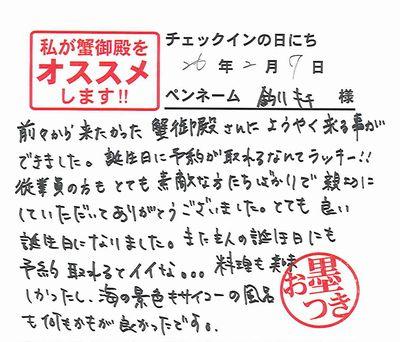 私が蟹御殿を
オススメ
します!!
チェックインの日にち
26年2月9日
ペンネーム 釣りキチ 様
前々から来たかった蟹御殿さんにようやく来る事が
できました。誕生日に予約が取れるなんてラッキー!!
従業員の方もとても素敵な方たちばかりで親切に
していただいてありがとうございました。とても良い
誕生日になりました。また主人の誕生日にも
予約取れるとイイな。。。料理も美味
しかったし、海の景色もサイコーの風呂
も何もかもが良かったです。
お墨つき